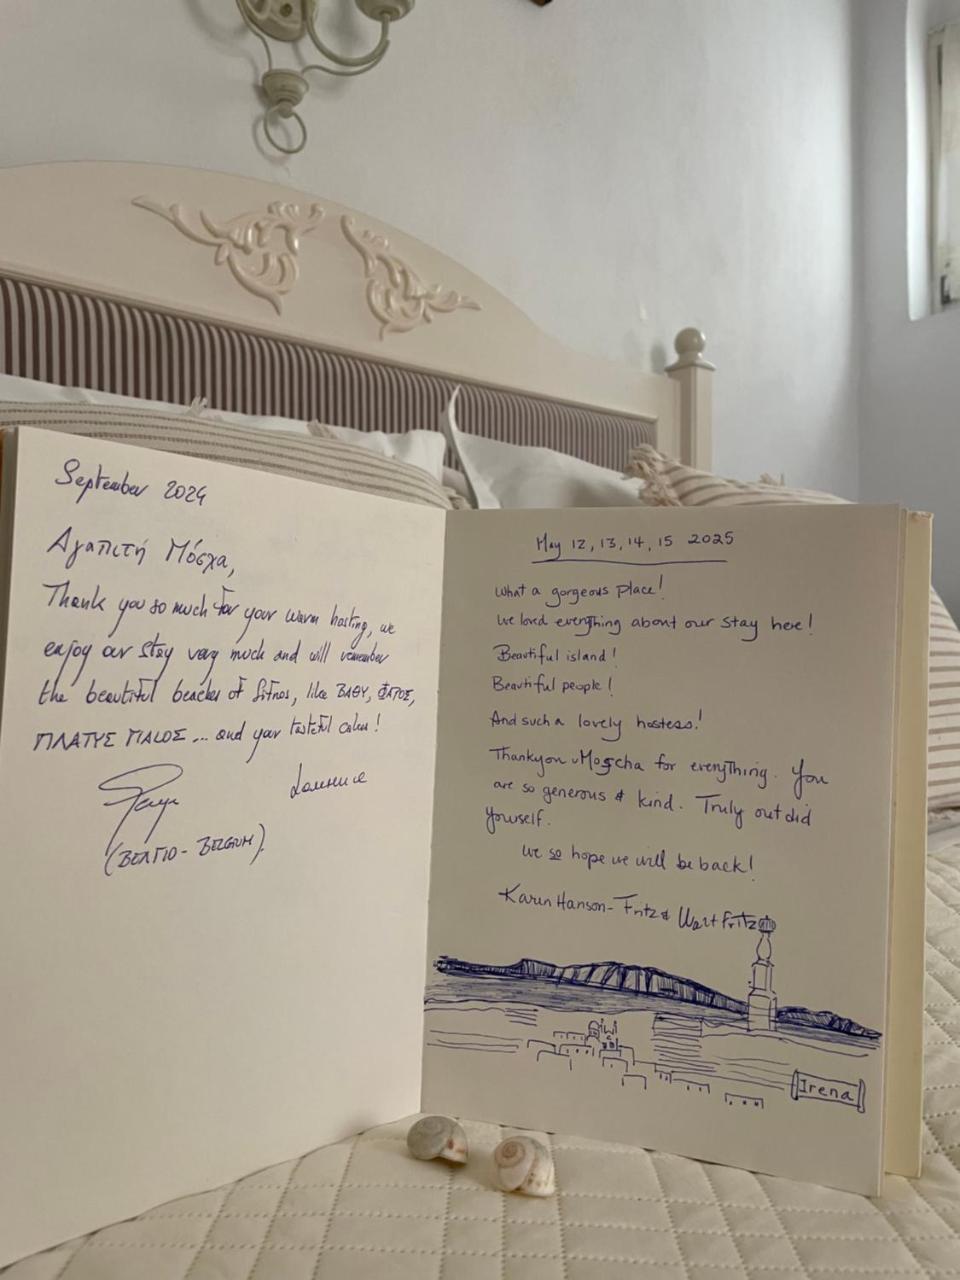 September 2024
Αγαπιτή Μόσχα,
Thank you so much for your warm hosting, we
enjoy our stay very much and will remember
the beautiful beaches of Sifnos, like ΒΑΘΥ, ΦΑΡΟΣ,
ΠΛΑΤΥΣ ΓΙΑΛΟΣ ... and your tasteful cakes!
Laurence
(ΒΕΛΓΙΟ - BELGIUM).
May 12, 13, 14, 15 2025
What a gorgeous place!
We loved everything about our stay here!
Beautiful island!
Beautiful people!
And such a lovely hostess!
Thankyou Moscha for everything. You
are so generous & kind. Truly out did
yourself.
We so hope we will be back!
Karin Hanson-Fritz & Walt Fritz
Irena